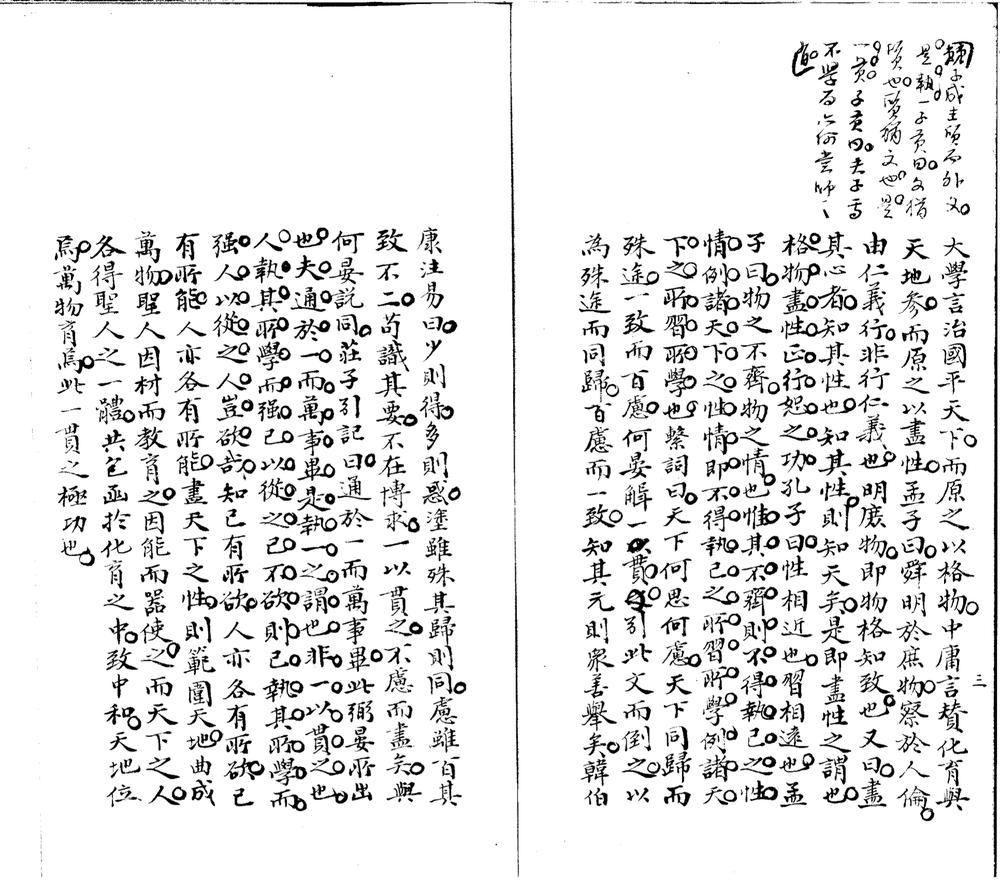 棘子成主質而外文
是執一子貢曰文猶
質也質猶文也是
一貫子貢曰夫子焉
不學而亦何常師之
有
大學言治國平天下而原之以格物中庸言贊化育與
天地參而原之以盡性孟子曰舜明於庶物察於人倫
由仁義行非行仁義也明庶物即物格知致也又曰盡
其心者知其性也知其性則知天矣是即盡性之謂也
格物盡性正行恕之功孔子曰性相近也習相遠也孟
子曰物之不齊物之情也惟其不齊則不得執己之性
情例諸天下之性情即不得執己之所習所學例諸天
下之所習所學也繫詞曰天下何思何慮天下同歸而
殊途一致而百慮何晏解一以貫之引此文而倒之以
為殊途而同歸百慮而一致知其元則眾善舉矣韓伯
三
康注易曰少則得多則惑塗雖殊其歸則同慮雖百其
致不二苟識其要不在博求一以貫之不慮而盡矣與
何晏說同莊子引記曰通於一而萬事畢此弼晏所出
也夫通於一而萬事畢是執一之謂也非一以貫之也
人執其所學而强己以從之己不欲則己執其所學而
强人以從之人豈欲哉知己有所欲人亦各有所欲己
有所能人亦各有所能盡天下之性則範圍天地曲成
萬物聖人因材而教育之因能而器使之而天下之人
各得聖人之一體共包函於化育之中致中和天地位
焉萬物育焉此一貫之極功也